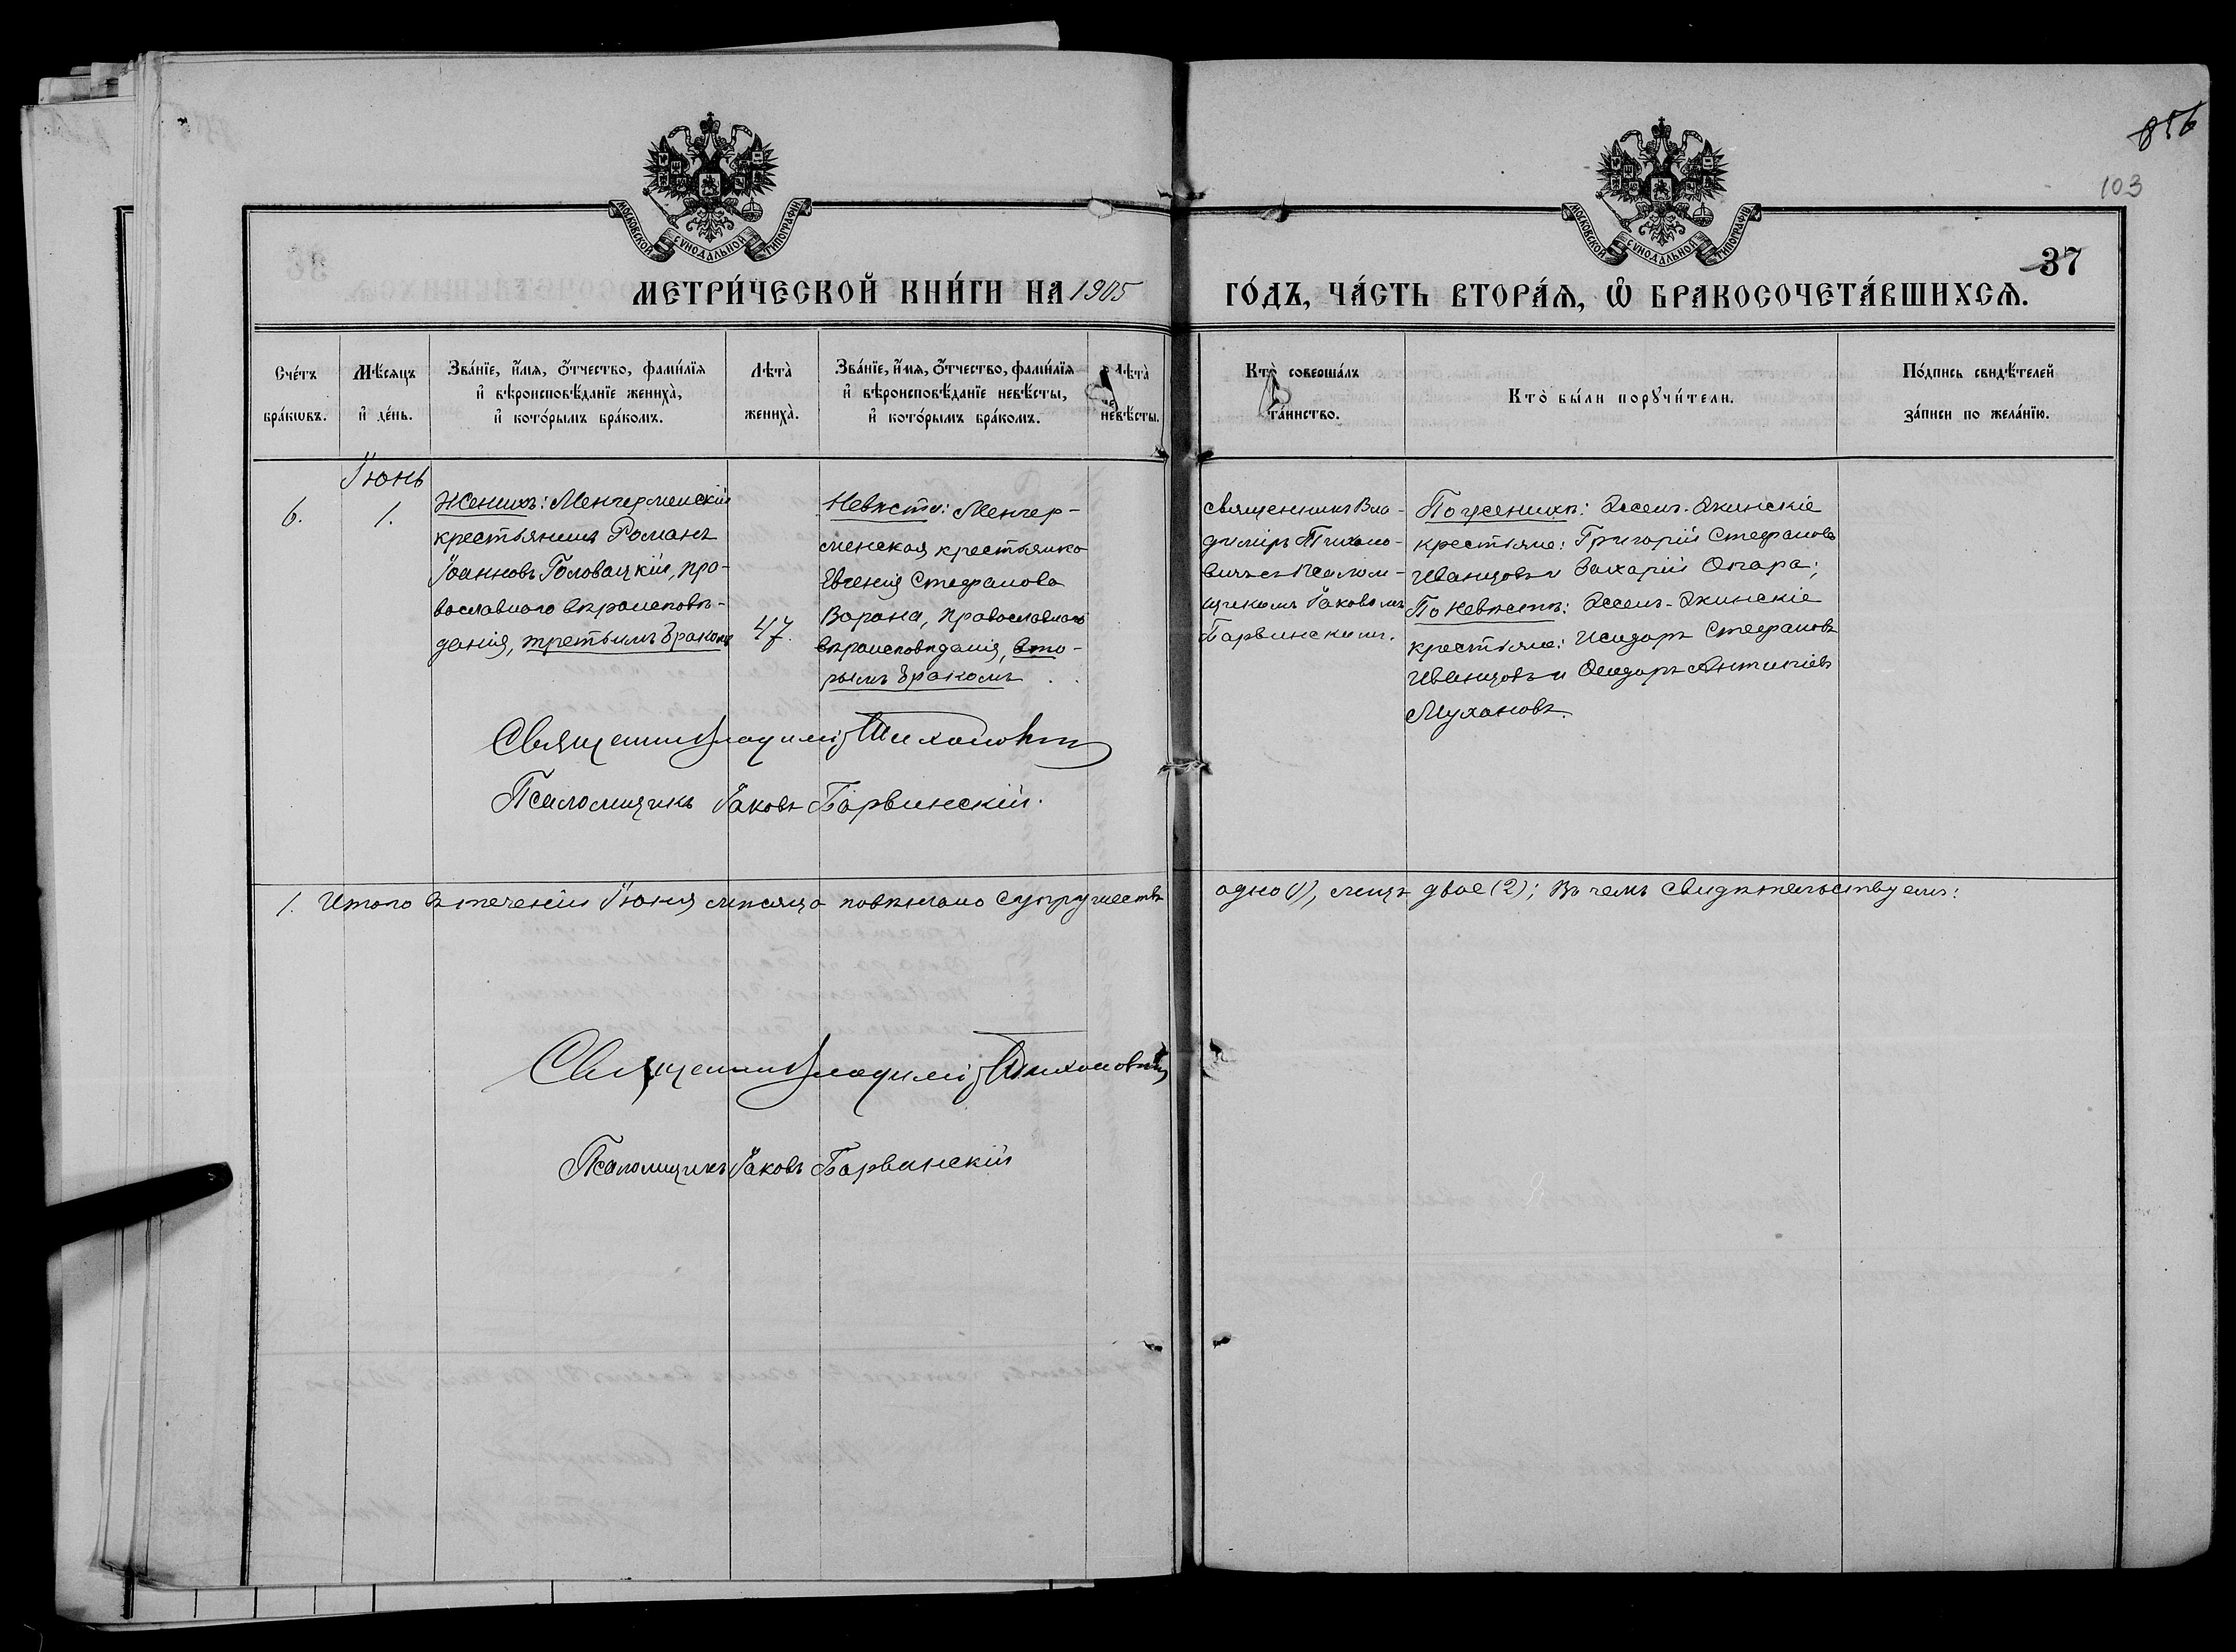 856
103
37
МОСКОВСКОЙ СУНОДАЛЬНОЙ ТИПОГРАФІИ
МОСКОВСКОЙ СУНОДАЛЬНОЙ ТИПОГРАФІИ
МЕТРИ́ЧЕСКОЙ КНИ́ГИ НА 1905 ГО́ДЪ, ЧА́СТЬ ВТОРА́Ѧ, Ѽ БРАКОСОЧЕТА́ВШИХСѦ.
Сче́тъ
бра́кѡвъ.
Мѣ́сяцъ
и҆ де́нь.
Зва́нїе, и҆́мѧ, ѻ҆́тчество, фами́лїѧ
и҆ вѣроисповѣ́данїе жениха̀,
и҆ кото́рымъ бра́комъ.
Лѣта̀
жениха̀.
Зва́нїе, и҆́мѧ, ѻ҆́тчество, фами́лїѧ
и҆ вѣроисповѣ́данїе невѣ́сты,
и҆ кото́рымъ бра́комъ.
Лѣта̀
невѣ́сты.
Кто̀ соверша́лъ
та́инство.
Кто̀ бы́ли порꙋчи́тели.
По́дпись свидѣ́телей
за́писи по жела́нїю.
6.
Іюнь
1.
Женихъ: Менчерменскій
крестьянинъ Романъ
Іоанновъ Головацкій, пра-
вославнаго вѣроисповѣ-
данія, третьимъ бракомъ
47.
Невѣста: Менчер-
менская крестьянка
Евгенія Стефанова
Варана, православнаго
вѣроисповѣданія, вто-
рымъ бракомъ
Священникъ Вла-
диміръ Тихоно-
вичъ съ псалом-
щикомъ Іаковомъ
Барвинскимъ.
По женихѣ:
крестьяне: Григорій Стефановъ
Иванцовъ и Захарій Опара;
По невѣстѣ:
крестьяне: Исидоръ Стефановъ
Иванцовъ и Ѳеодоръ Антипіевъ
Мухановъ.
Священникъ Владиміръ Тихоновичъ
Псаломщикъ Іаковъ Барвинскій.
1. Итого въ теченіи Іюня мѣсяца повѣнчано супружествъ одно (1), лицъ двое (2); Въ чемъ свидѣтельствуемъ:
Священникъ Владиміръ Тихоновичъ
Псаломщикъ Іаковъ Барвинскій